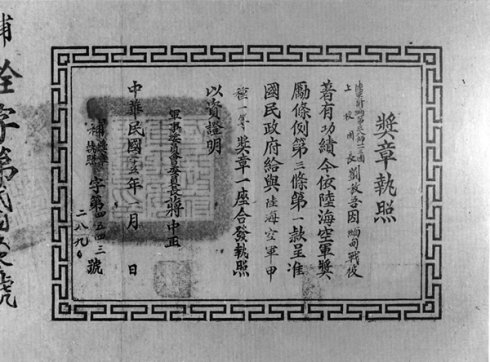 獎章執照
上校團長劉放吾因緬甸戰役
著有功績今依陸海空軍獎
勵條例第三條第一款呈准
國民政府給與陸海空軍甲
種一等獎章一座合發執照
以資證明
軍事委員會委員長蔣中正
中華民國三十五年一月 日
補 字第四五四三號
二八九
補 銓字第 號